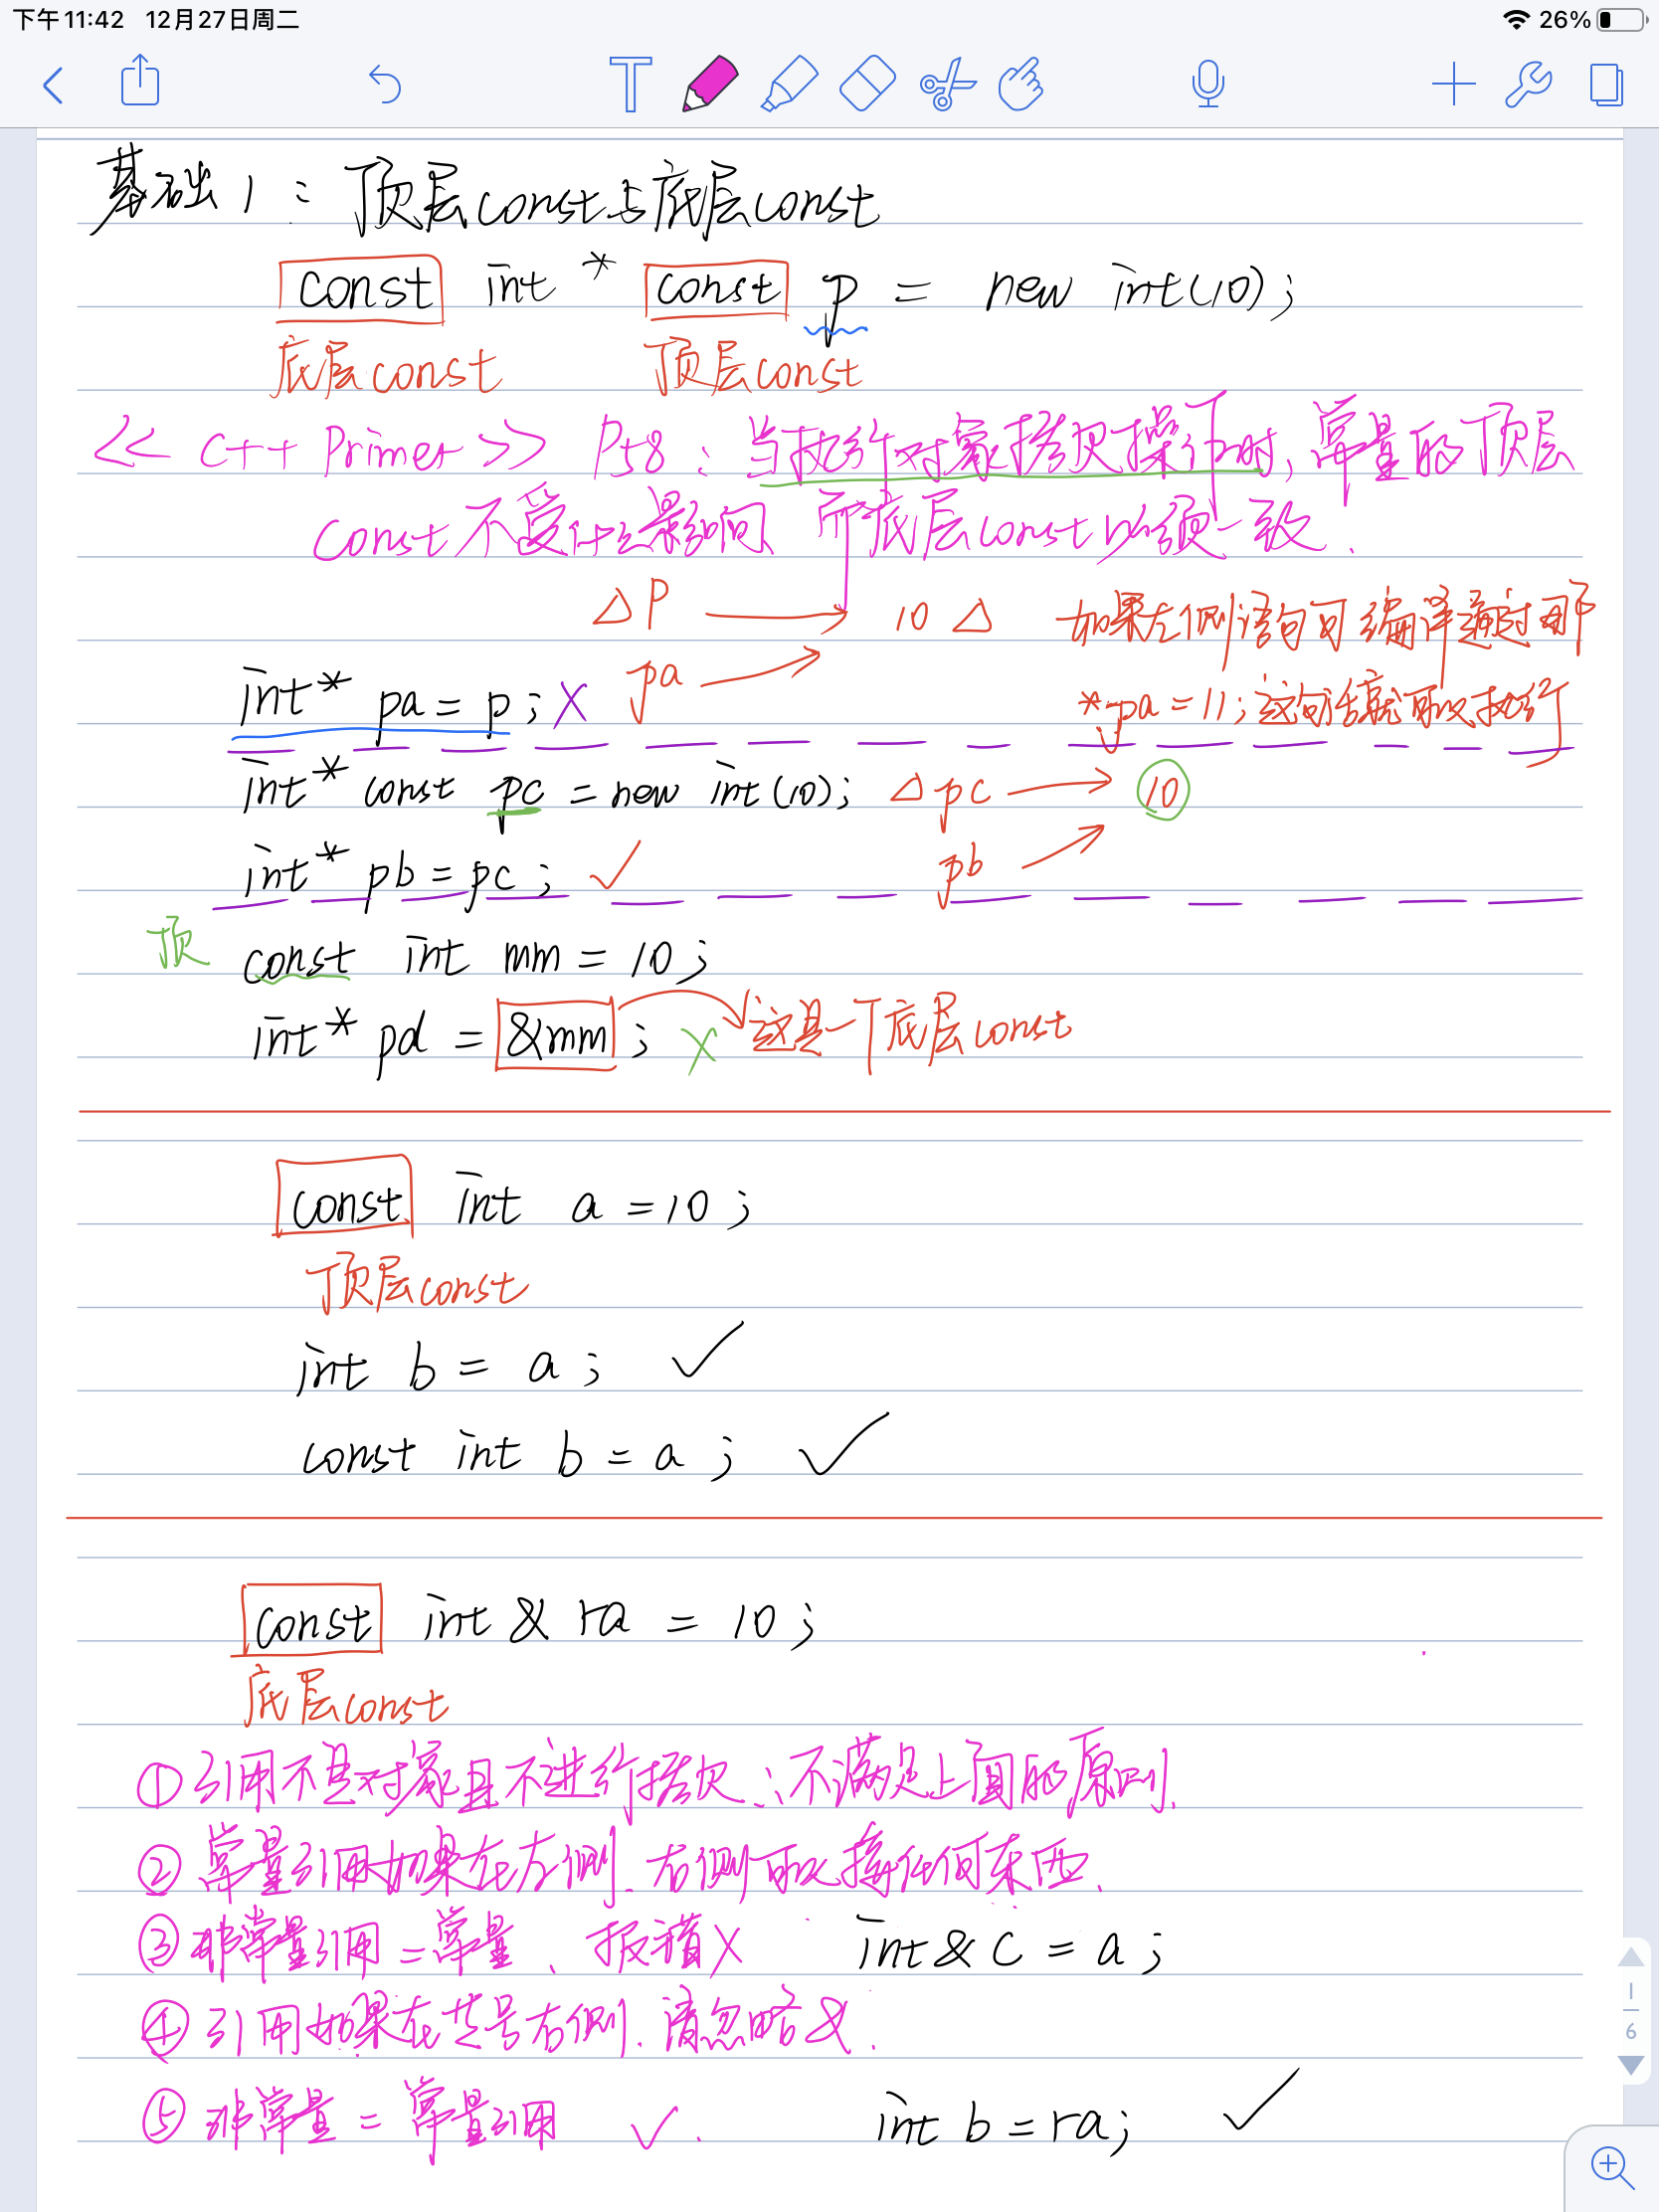 下午11:42 12月27日周二 26%
基础1：顶层const与底层const
const int * const p = new int(10);
底层const 顶层const
<< C++ Primer >> P58：当执行对象拷贝操作时，常量的顶层
const不受什么影响 而底层const必须一致.
△ p 10 △ 如果左侧语句可编译通过 那
int* pa = p; X pa *pa = 11; 这句话就可以执行
int* const pc = new int(10); △ pc 10
int* pb = pc; ✓ pb
顶 const int mm = 10;
int* pd = &mm; X 这是一个底层const
const int a = 10;
顶层const
int b = a; ✓
const int b = a; ✓
const int & ra = 10;
底层const
① 引用不是对象且不进行拷贝 ∴不满足上面的原则.
② 常量引用如果在左侧、右侧可以接任何东西.
③ 非常量引用 = 常量、报错X int & c = a;
④ 引用如果在等号右侧、请忽略&.
⑤ 非常量 = 常量引用 ✓. int b = ra; ✓
1
6